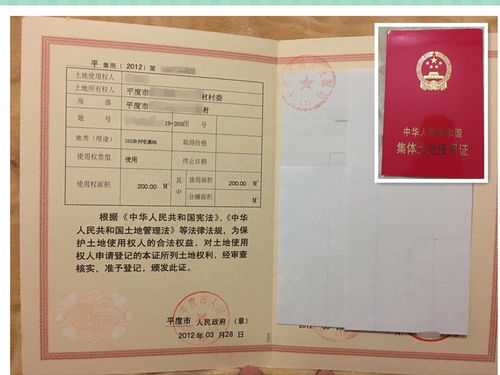 平 集用（2012）第
土地使用权人
土地所有权人 平度市 村村委
座 落 平度市 村
地 号 19-269 图 号
地类（用途） 农村宅基地 取得价格
使用权类型 使用 终止日期
使用权面积 200.00 M² 其中 独用面积 200.00 M²
分摊面积 M²
根据《中华人民共和国宪法》、《中华
人民共和国土地管理法》等法律法规，为保
护土地使用权人的合法权益，对土地使用
权人申请登记的本证所列土地权利，经审查
核实，准予登记，颁发此证。
平度市 人民政府 （章）
2012 年 03 月 28 日
中华人民共和国
集体土地使用证